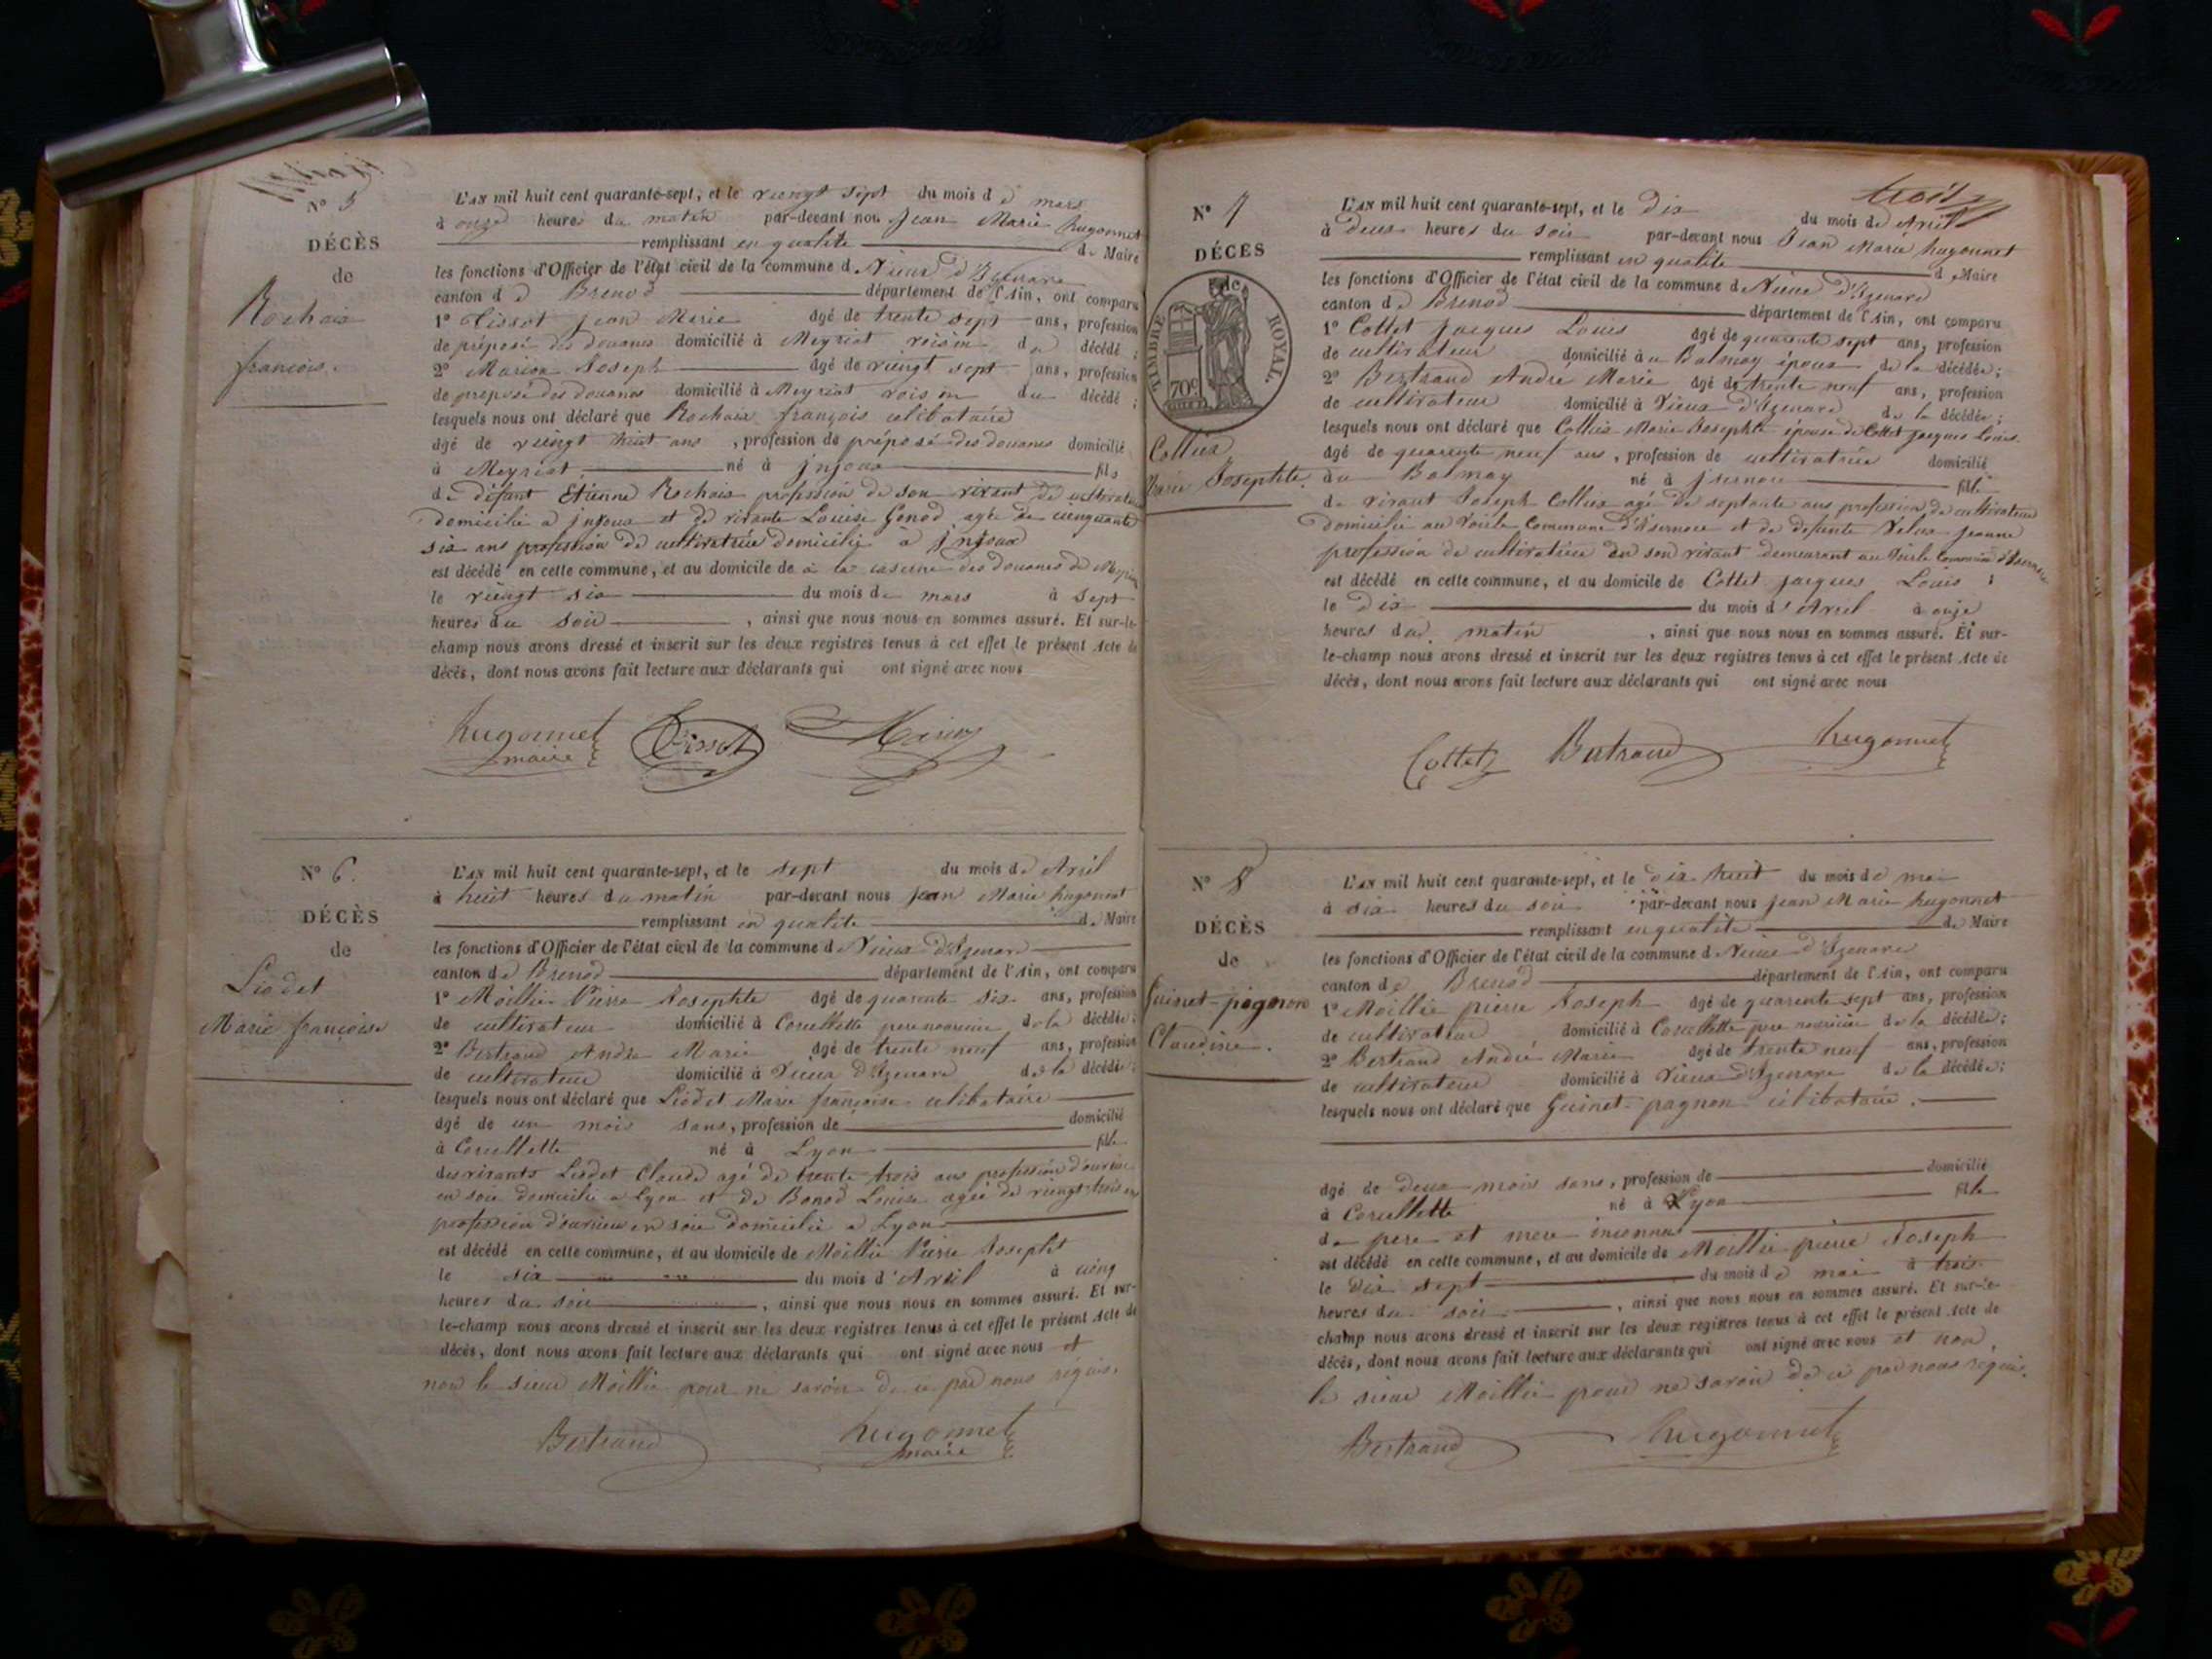 N° 5
DÉCÈS
de
Rochaix
françois.
L'AN mil huit cent quarante-sept, et le viengt sept du mois de mars
à onze heures du matin par-devant nous Jean Marie hugonnet
remplissant en qualité de Maire
les fonctions d'Officier de l'état civil de la commune d Vieux d'Izenave
canton de Brenod département de l'Ain, ont comparu
1° Tissot jean Marie âgé de trente sept ans, profession
de préposé des douanes domicilié à Meyriat voisin du décédé ;
2° Marion Joseph âgé de viengt sept ans, profession
de preposé des douanes domicilié à Meyriat voisin du décédé ;
lesquels nous ont déclaré que Rochaix françois celibataire
âgé de viengt huit ans , profession de préposé des douanes domicilié
à Meyriat né à jnjoux fils
de défunt Etienne Rochaix profession de son vivant de cultivateur
domicilié a jnjoux et de vivante Louise Genod agée de cienquante
six ans profession de cultivatrice domicilié a jnjoux
est décédé en cette commune, et au domicile de a la caserne des douanes de Meyriat
le viengt six du mois de mars à sept
heures du soir , ainsi que nous nous en sommes assuré. Et sur-le-
champ nous avons dressé et inscrit sur les deux registres tenus à cet effet le présent Acte de
décès, dont nous avons fait lecture aux déclarants qui ont signé avec nous
hugonnet Tissot Marion
maire
N° 6.
DÉCÈS
de
Liodet
Marie françoise
L'AN mil huit cent quarante-sept, et le sept du mois de Avril
à huit heures du matin par-devant nous jean Marie hugonnet
remplissant en qualité de Maire
les fonctions d'Officier de l'état civil de la commune d Vieux d'Izenave
canton de Brenod département de l'Ain, ont comparu
1° Moillie Pierre Josephte âgé de quarente six ans, profession
de cultivateur domicilié à Corcellette pere nourricier de la décédée ;
2° Bertrand Andre Marie âgé de trente neuf ans, profession
de cultivateur domicilié à Vieux d'Izenave de la décédée ;
lesquels nous ont déclaré que Liodet Marie françoise celibataire
âgé de un mois sans, profession de domicilié
à Corcellette né à Lyon fille
des vivants Liodet Claude agé de trente trois ans profession d'ouvrier
en soie domicilié a lyon et de Bonod Louise agée de viengt trois ans
profession d'ouvriere en soie domicilié a Lyon
est décédé en cette commune, et au domicile de Moillie Pierre Josepht
le six du mois d'Avril à cinq
heures du soir , ainsi que nous nous en sommes assuré. Et sur-
le-champ nous avons dressé et inscrit sur les deux registres tenus à cet effet le présent Acte de
décès, dont nous avons fait lecture aux déclarants qui ont signé avec nous et
non le sieur Moillie pour ne savoir de ce par nous réquis.
Bertrand hugonnet
maire
trois
N° 7
DÉCÈS
de
TIMBRE ROYAL.
70c
Collux
Marie Josephte.
L'AN mil huit cent quarante-sept, et le dix du mois de Avril
à deux heures du soir par-devant nous Jean Marie hugonnet
remplissant en qualité d Maire
les fonctions d'Officier de l'état civil de la commune d Vieux d'Izenave
canton de Brenod département de l'Ain, ont comparu
1° Cottet jacques Louis âgé de quarente sept ans, profession
de cultivateur domicilié à u Balmay époux de la décédée ;
2° Bertrand Andre Marie âgé de trente neuf ans, profession
de cultivateur domicilié à Vieux d'Izenave de la décédée ;
lesquels nous ont déclaré que Collux Marie Josephte épouse de Cottet jacques Louis
âgé de quarente neuf ans , profession de cultivatrice domicilié
au Balmay né à jzernore fille
de vivant Joseph Collux agé de septante ans profession de cultivateur
domicilié au Voerle Commune d'Isernore et de defunte Velus jeanne
profession de cultivatrice du son vivant demeurant au Voerle Commune d'Isernore
est décédé en cette commune, et au domicile de Cottet jacques Louis ;
le dix du mois d'Avril à onze
heures du matin , ainsi que nous nous en sommes assuré. Et sur-
le-champ nous avons dressé et inscrit sur les deux registres tenus à cet effet le présent Acte de
décès, dont nous avons fait lecture aux déclarants qui ont signé avec nous
Cottet Bertrand hugonnet
N° 8
DÉCÈS
de
Guinet-pagnon
Claudine.
L'AN mil huit cent quarante-sept, et le dix huit du mois de mai
à six heures du soir par-devant nous jean Marie hugonnet
remplissant en qualité de Maire
les fonctions d'Officier de l'état civil de la commune d Vieux d'Izenave
canton de Brenod département de l'Ain, ont comparu
1° Moillie pierre Joseph âgé de quarente sept ans, profession
de cultivateur domicilié à Corcellette pere nourricier de la décédée ;
2° Bertrand André Marie âgé de trente neuf ans, profession
de cultivateur domicilié à Vieux d'Izenave de la décédée ;
lesquels nous ont déclaré que Guinet-pagnon celibataire.
âgé de deux mois sans, profession de domicilié
à Corcellette né à Lyon fille
de pere et mere inconnus
est décédé en cette commune, et au domicile de Moillie pierre Joseph
le dix sept du mois de mai à trois
heures du soir , ainsi que nous nous en sommes assuré. Et sur-le-
champ nous avons dressé et inscrit sur les deux registres tenus à cet effet le présent Acte de
décès, dont nous avons fait lecture aux déclarants qui ont signé avec nous et non,
le sieur Moillie pour ne savoir de ce par nous requis.
Bertrand hugonnet